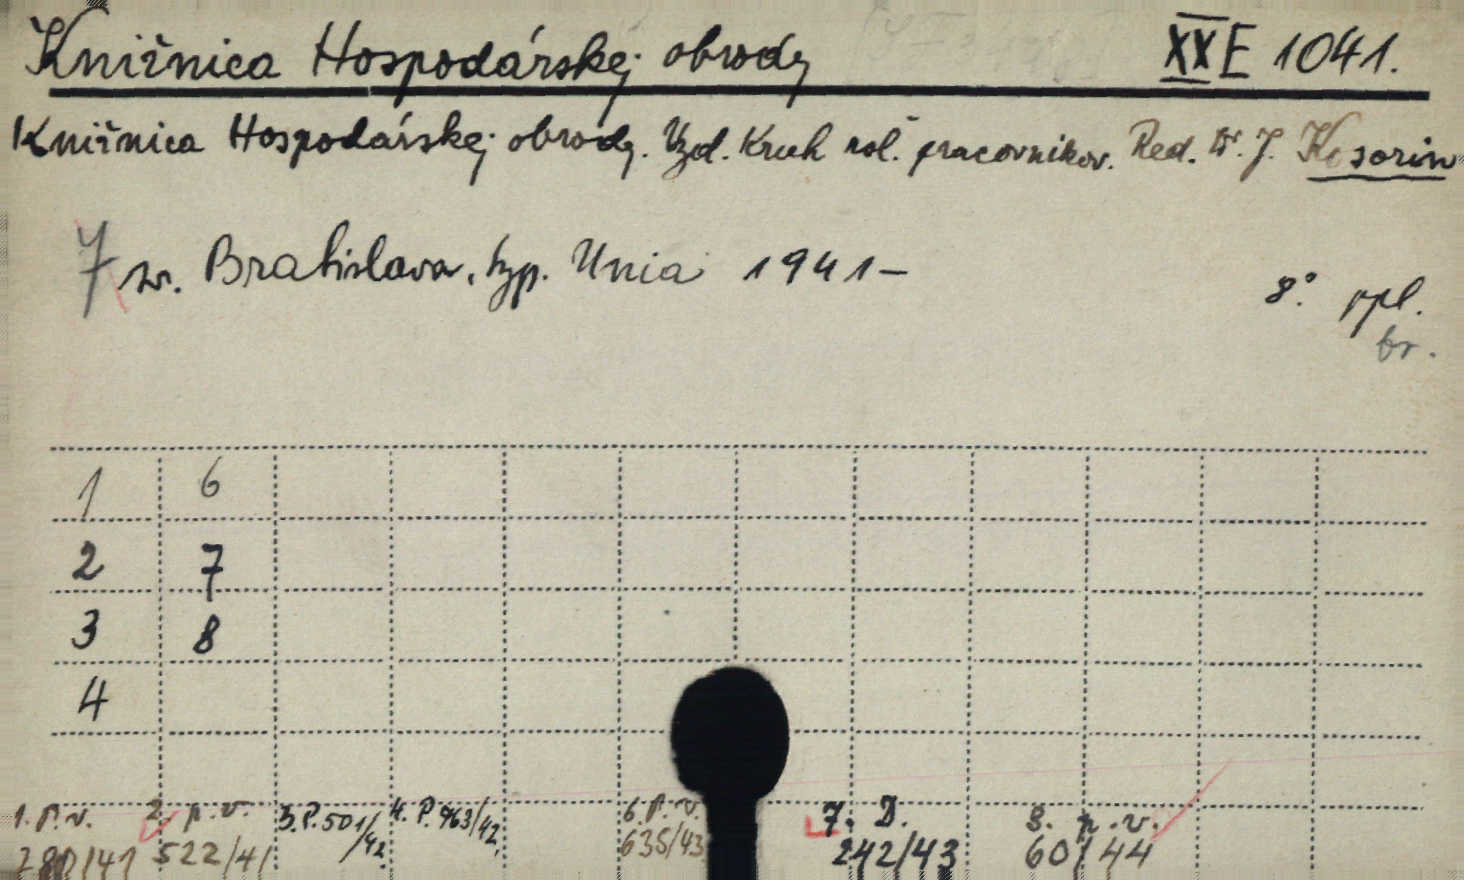 Knižnica Hospodárskej obrody XXE 1041.
Knižnica Hospodárskej obrody. Vyd. Kruh rol. pracovnikov. Red. Dr. J. Kosorin
7 zv. Bratislava, typ. Unia 1941-
8° ppl.
br.
1 6
2 7
3 8
4
1. p. v. 2. p. v. 3. P. 501/42 4. P. 963/42 6. p. v. 7. D. 8. p. v.
780/41 522/41 635/43 242/43 60/44